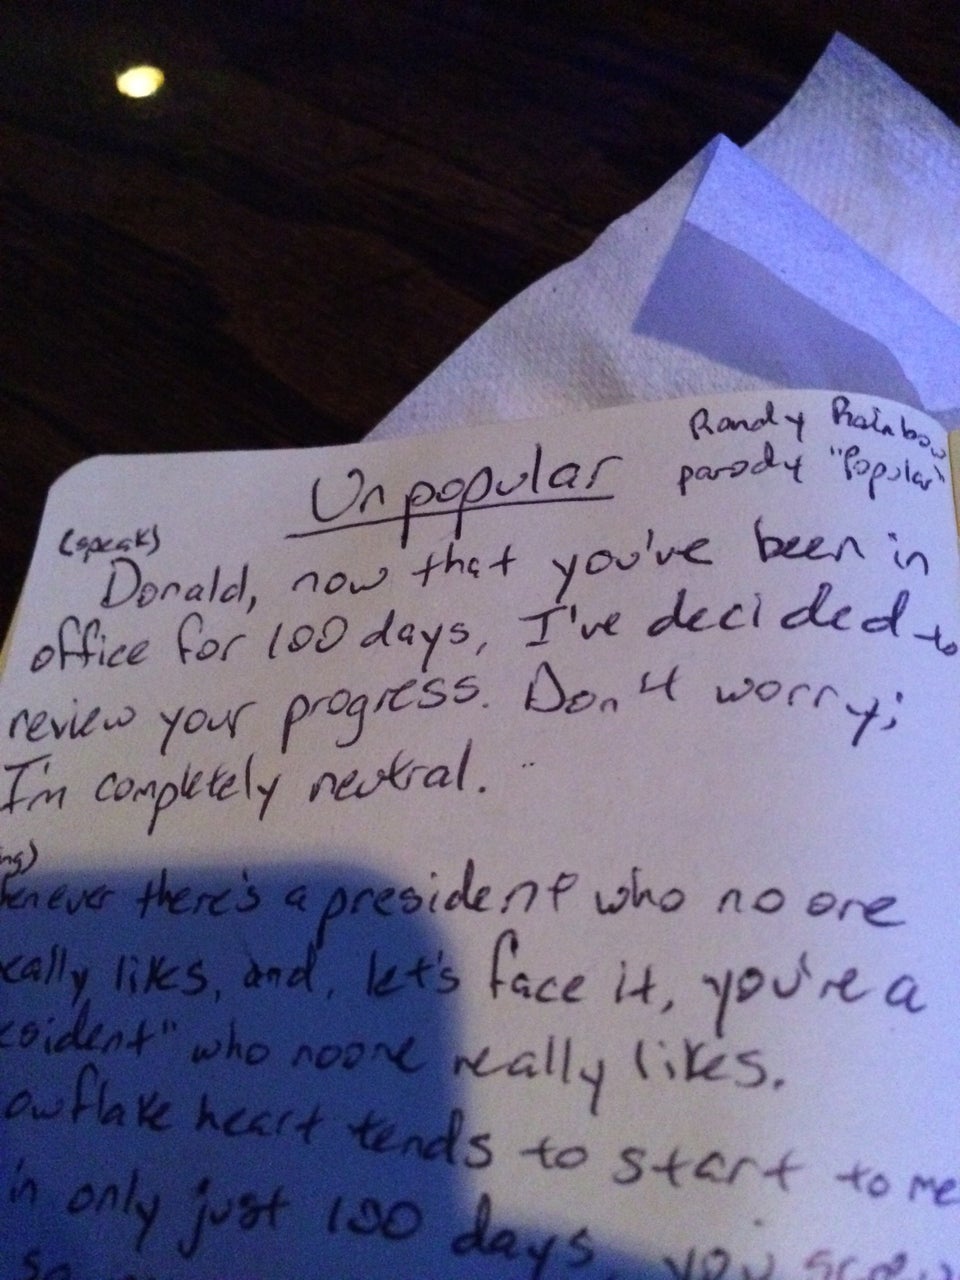 Randy Rainbow
Unpopular parody "Popular"
(speak)
Donald, now that you've been in
office for 100 days, I've decided to
review your progress. Don't worry;
I'm completely neutral.
there's a president who no one
likes, and, let's face it, you're a
who noone really likes.
heart tends to start to me
in only just 100 days, you screw
so